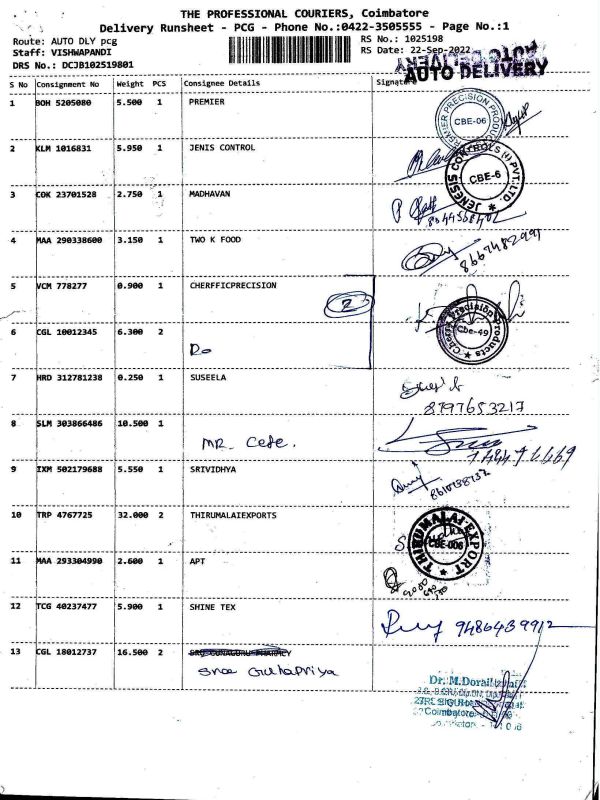 THE PROFESSIONAL COURIERS, Coimbatore
Delivery Runsheet - PCG - Phone No.:0422-3505555 - Page No.:1
Route: AUTO DLY pcg
RS No.: 1025198
Staff: VISHWAPANDI
RS Date: 22-Sep-2022
DRS No.: DCJB102519801
AUTO DELIVERY
AUTO DELIVERY
S No Consignment No Weight PCS Consignee Details Signature
1 BOH 5205080 5.500 1 PREMIER
PREMIER PRECISION PRODUCTS
CBE-06
2 KLM 1016831 5.950 1 JENIS CONTROL
JENESIS CONTROLS (I) PVT. LTD.
CBE-6
3 COK 23701528 2.750 1 MADHAVAN
4 MAA 290338600 3.150 1 TWO K FOOD
8667482991
5 VCM 778277 0.900 1 CHERFFICPRECISION
2
Precision Products
Cbe-49
6 CGL 10012345 6.300 2
Do
7 HRD 312781238 0.250 1 SUSEELA
8797653217
8 SLM 303866486 10.500 1
MR. Cefe.
9 IXM 502179688 5.550 1 SRIVIDHYA
10 TRP 4767725 32.000 2 THIRUMALAIEXPORTS
THIRUMALAI EXPORT
CBE-006
11 MAA 293304990 2.600 1 APT
12 TCG 40237477 5.900 1 SHINE TEX
9486439912
13 CGL 18012737 16.500 2
Sree Guhapriya
Dr. M.Dorai
Coimbatore